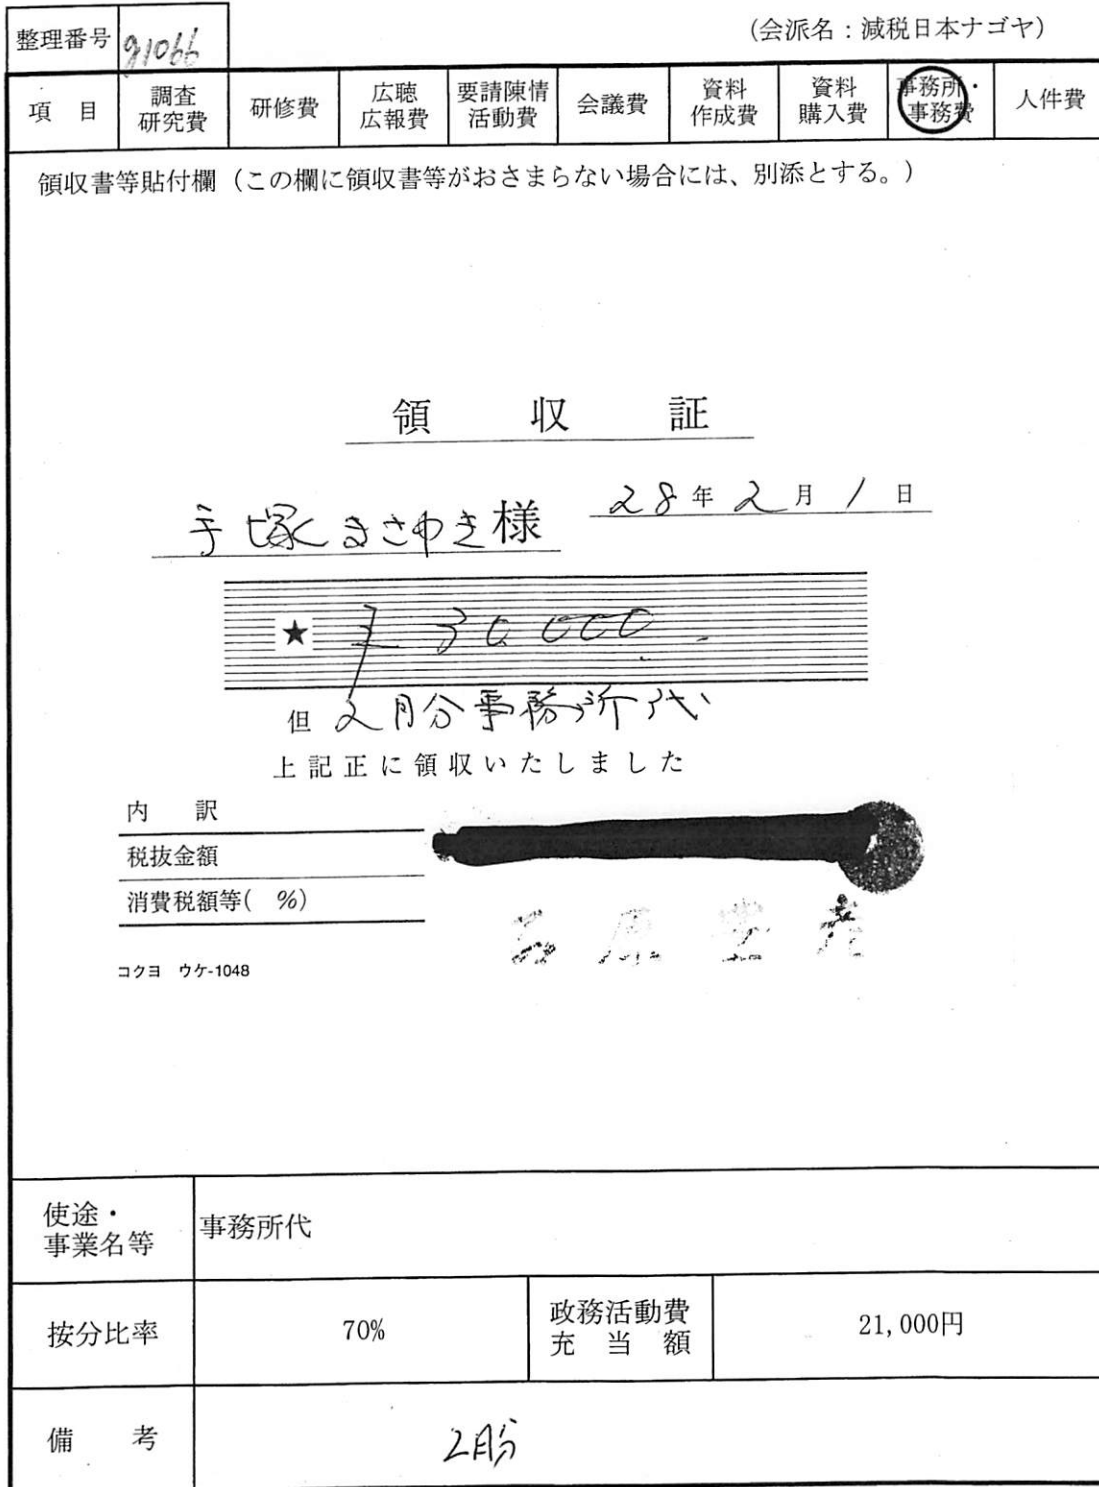 (会派名：減税日本ナゴヤ)
整理番号 91066
項 目 調査研究費 研修費 広聴広報費 要請陳情活動費 会議費 資料作成費 資料購入費 事務所・事務費 人件費
領収書等貼付欄（この欄に領収書等がおさまらない場合には、別添とする。）
領 収 証
28年2月1日
手塚まさゆき様
★ ¥30,000.
但 2月分事務所代
上記正に領収いたしました
内 訳
税抜金額
消費税額等( %)
コクヨ ウケ-1048
使途・事業名等 事務所代
按分比率 70% 政務活動費充当額 21,000円
備 考 2月分